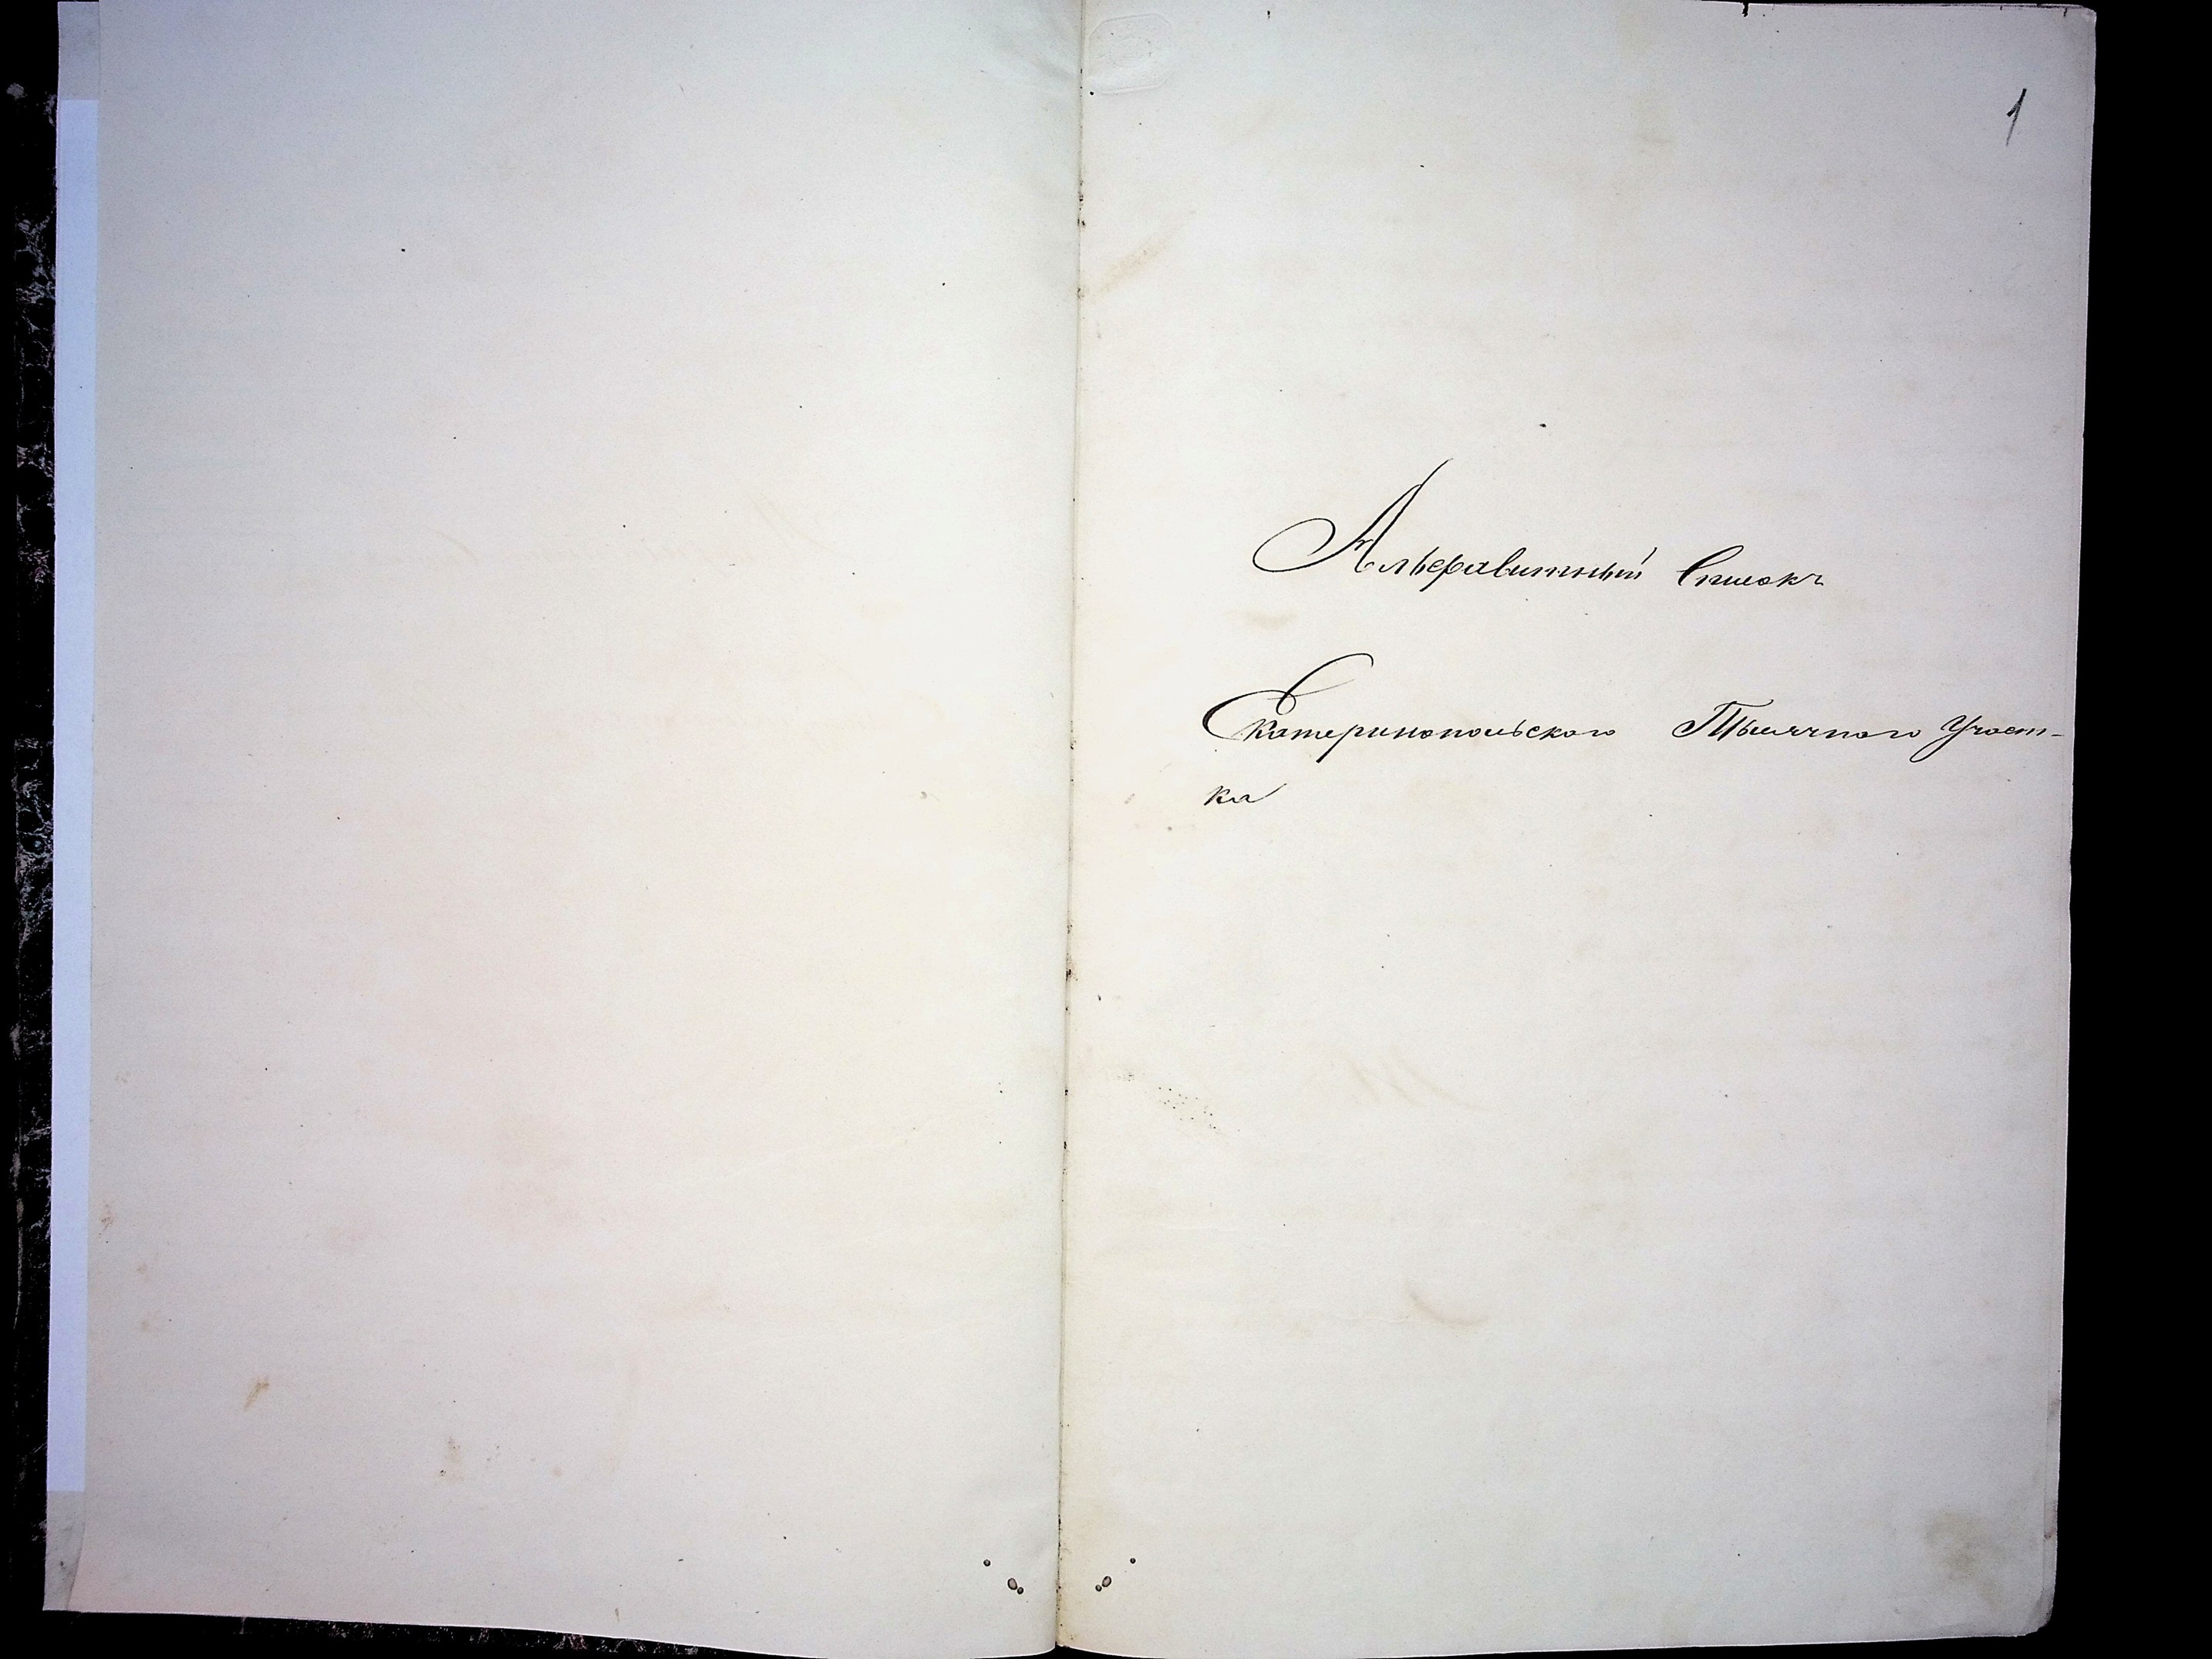 1
Альфавитный Списокъ
Екатеринопольского Тысячного Участ-
ка